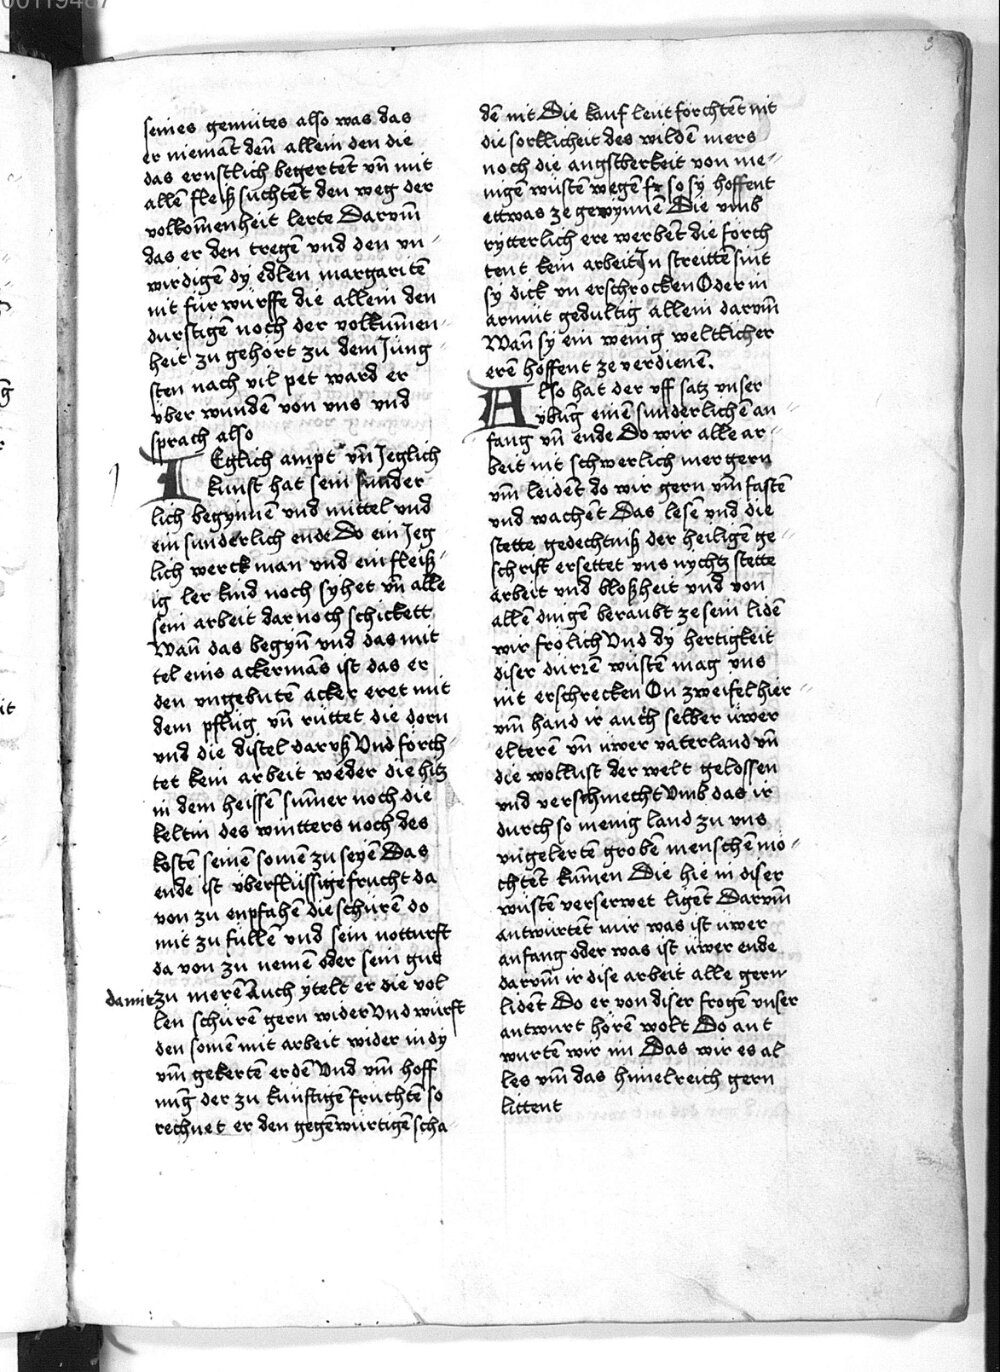 00119487
3
seines gemütes also was das
er niemāt deñ allein den die
das ernstlich begertēt vñ mit
allē fleiß suchtēt den weg der
volkom̄enheit lerte Darvm̄
das er den tregē vnd den vn
wirdigē dy edlen margaritē
nit für wurffe die allein den
durstigē noch der volkum̄en
heit zu gehort zu dem Jüng
sten nach vil pet ward er
vber wundē von vns vnd
sprach also
IEglich ampt vñ Jeglich
kunst hat sein sunder
lich begynnē vnd mittel vnd
ein sunderlich ende Do ein Jeg
lich werck man vnd ein fleiß
ig ler kind noch syhet vñ alle
sein arbeit dar noch schickett
Wañ das begyn̄ vnd das mit
tel eins ackermās ist das er
den vngebutē acker eret mit
dem pflug vñ rüttet die dorn
vnd die distel dar vß Vnd forch
tet kein arbeit weder die hitz
in dem heissē sum̄er noch die
keltin des wintters noch des
kostē seinē somē zu seyē Das
ende ist vberflüssige frucht da
von zu enpfahē die schürē do
mit zu füllē vnd sein notturft
da von zu nemē oder sein gut
damit zu merē Auch ytelt er die vol
len schürē gern wider Vnd würft
den somē mit arbeit wider in dy
vm̄ gekertē erdē Vnd vm̄ hoff
nūg der zu künftigē fruchtē so
rechnet er den gegēwürtigē scha
dē nit Die kauf leut forchtēt nit
die sorklicheit des wildē mers
noch die angstberkeit von me
nigē wustē wegē fr so sy hoffent
ettwas ze gewynnē Die vmb
rytterlich ere werbēt die forch
tent kein arbeit In streittē sint
sy dick vn erschrocken Oder in
armut gedultig allein darvm̄
Wañ sy ein wenig weltlicher
erē hoffent ze verdienē.
Also hat der vff satz vnser
vbūg einē sunderlichē an
fang vñ ende Do wir alle ar
beit nit schwerlich mer gern
vm̄ leidēt do wir gern vm̄ fastē
vnd wachēt Das lesē vnd die
stette gedechtniß der heiligē ge
schrift ersettet vns nychtz stette
arbeit vnd bloßheit vnd von
allē dingē beraubt ze sein lidē
wir frölich Vnd dy hertigkeit
diser dürrē wüstē mag vns
nit erschrecken On zweifel hier
vm̄ hand ir auch selber üwer
elterē vñ üwer vaterland vñ
die wollust der welt gelossen
vnd verschmecht Vmb das ir
durch so menig land zu vns
vngelertē grobē menschē mö
chtēt kumen Die hie in diser
wüstē verserwet ligēt Darvm̄
antwürtēt mir was ist üwer
anfang oder was ist üwer ende
darvm̄ ir dise arbeit alle gern
lidēt Do er von diser frogē vnser
antwurt hörē wolt Do ant
wurtē wir im Das wir es al
les vm̄ das himelreich gern
littent